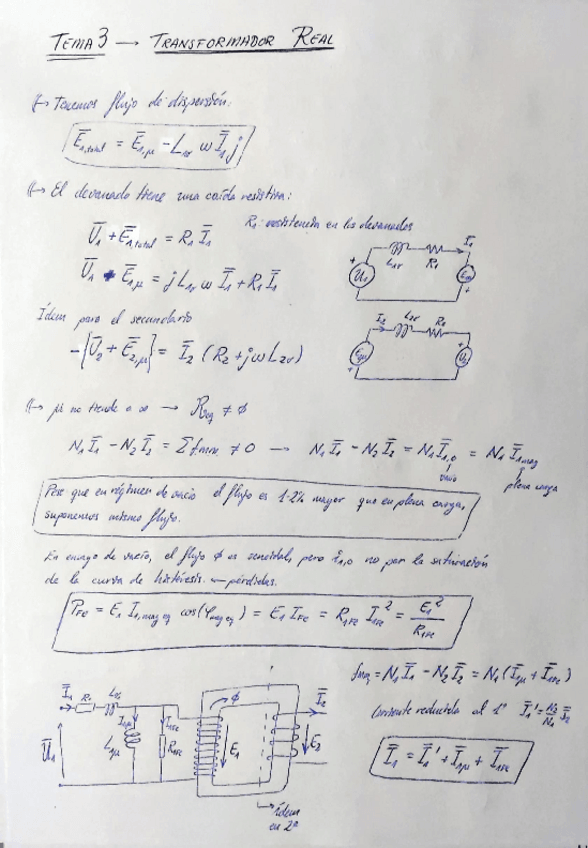 TEMA 3 → TRANSFORMADOR REAL
↳ Tenemos flujo de dispersión:
Ē₁,total = Ē₁,μ - L₁σ ω Ī₁ j
↳ El devanado tiene una caída resistiva:
R₁: resistencia en los devanados
Ū₁ + Ē₁,total = R₁ Ī₁
Ū₁ + Ē₁,μ = j L₁σ ω Ī₁ + R₁ Ī₁
Ī₁
L₁σ R₁
U₁
Ídem para el secundario
-[Ū₂ + Ē₂,μ] = Ī₂ (R₂ + jωL₂σ)
I₂ L₂σ R₂
E₂μ U₂
↳ μ no tiende a ∞ → Req ≠ φ
N₁ Ī₁ - N₂ Ī₂ = Σ fmm ≠ 0 → N₁ Ī₁ - N₂ Ī₂ = N₁ Ī₁,₀ = N₁ Ī₁mag
vacío
plena carga
Pese que en régimen de vacío el flujo es 1-2% mayor que en plena carga,
suponemos mismo flujo.
En ensayo de vacío, el flujo φ es senoidal, pero i₁,₀ no por la saturación
de la curva de histéresis. ← pérdidas.
PFe = E₁ I₁,mag eq cos(φmag eq) = E₁ IFe = R₁Fe I₁Fe² = E₁²/R₁Fe
fmm = N₁ Ī₁ - N₂ Ī₂ = N₁ (Ī₁μ + Ī₁Fe)
Corriente reducida al 1º Ī₁' = N₂/N₁ Ī₂
Ī₁ = Ī₁' + Ī₁μ + Ī₁Fe
Ī₁ R₁ L₁σ
I₁μ I₁Fe
Ū₁ L₁μ R₁Fe
φ
E₁
Ī₂
E₂
ídem
en 2º